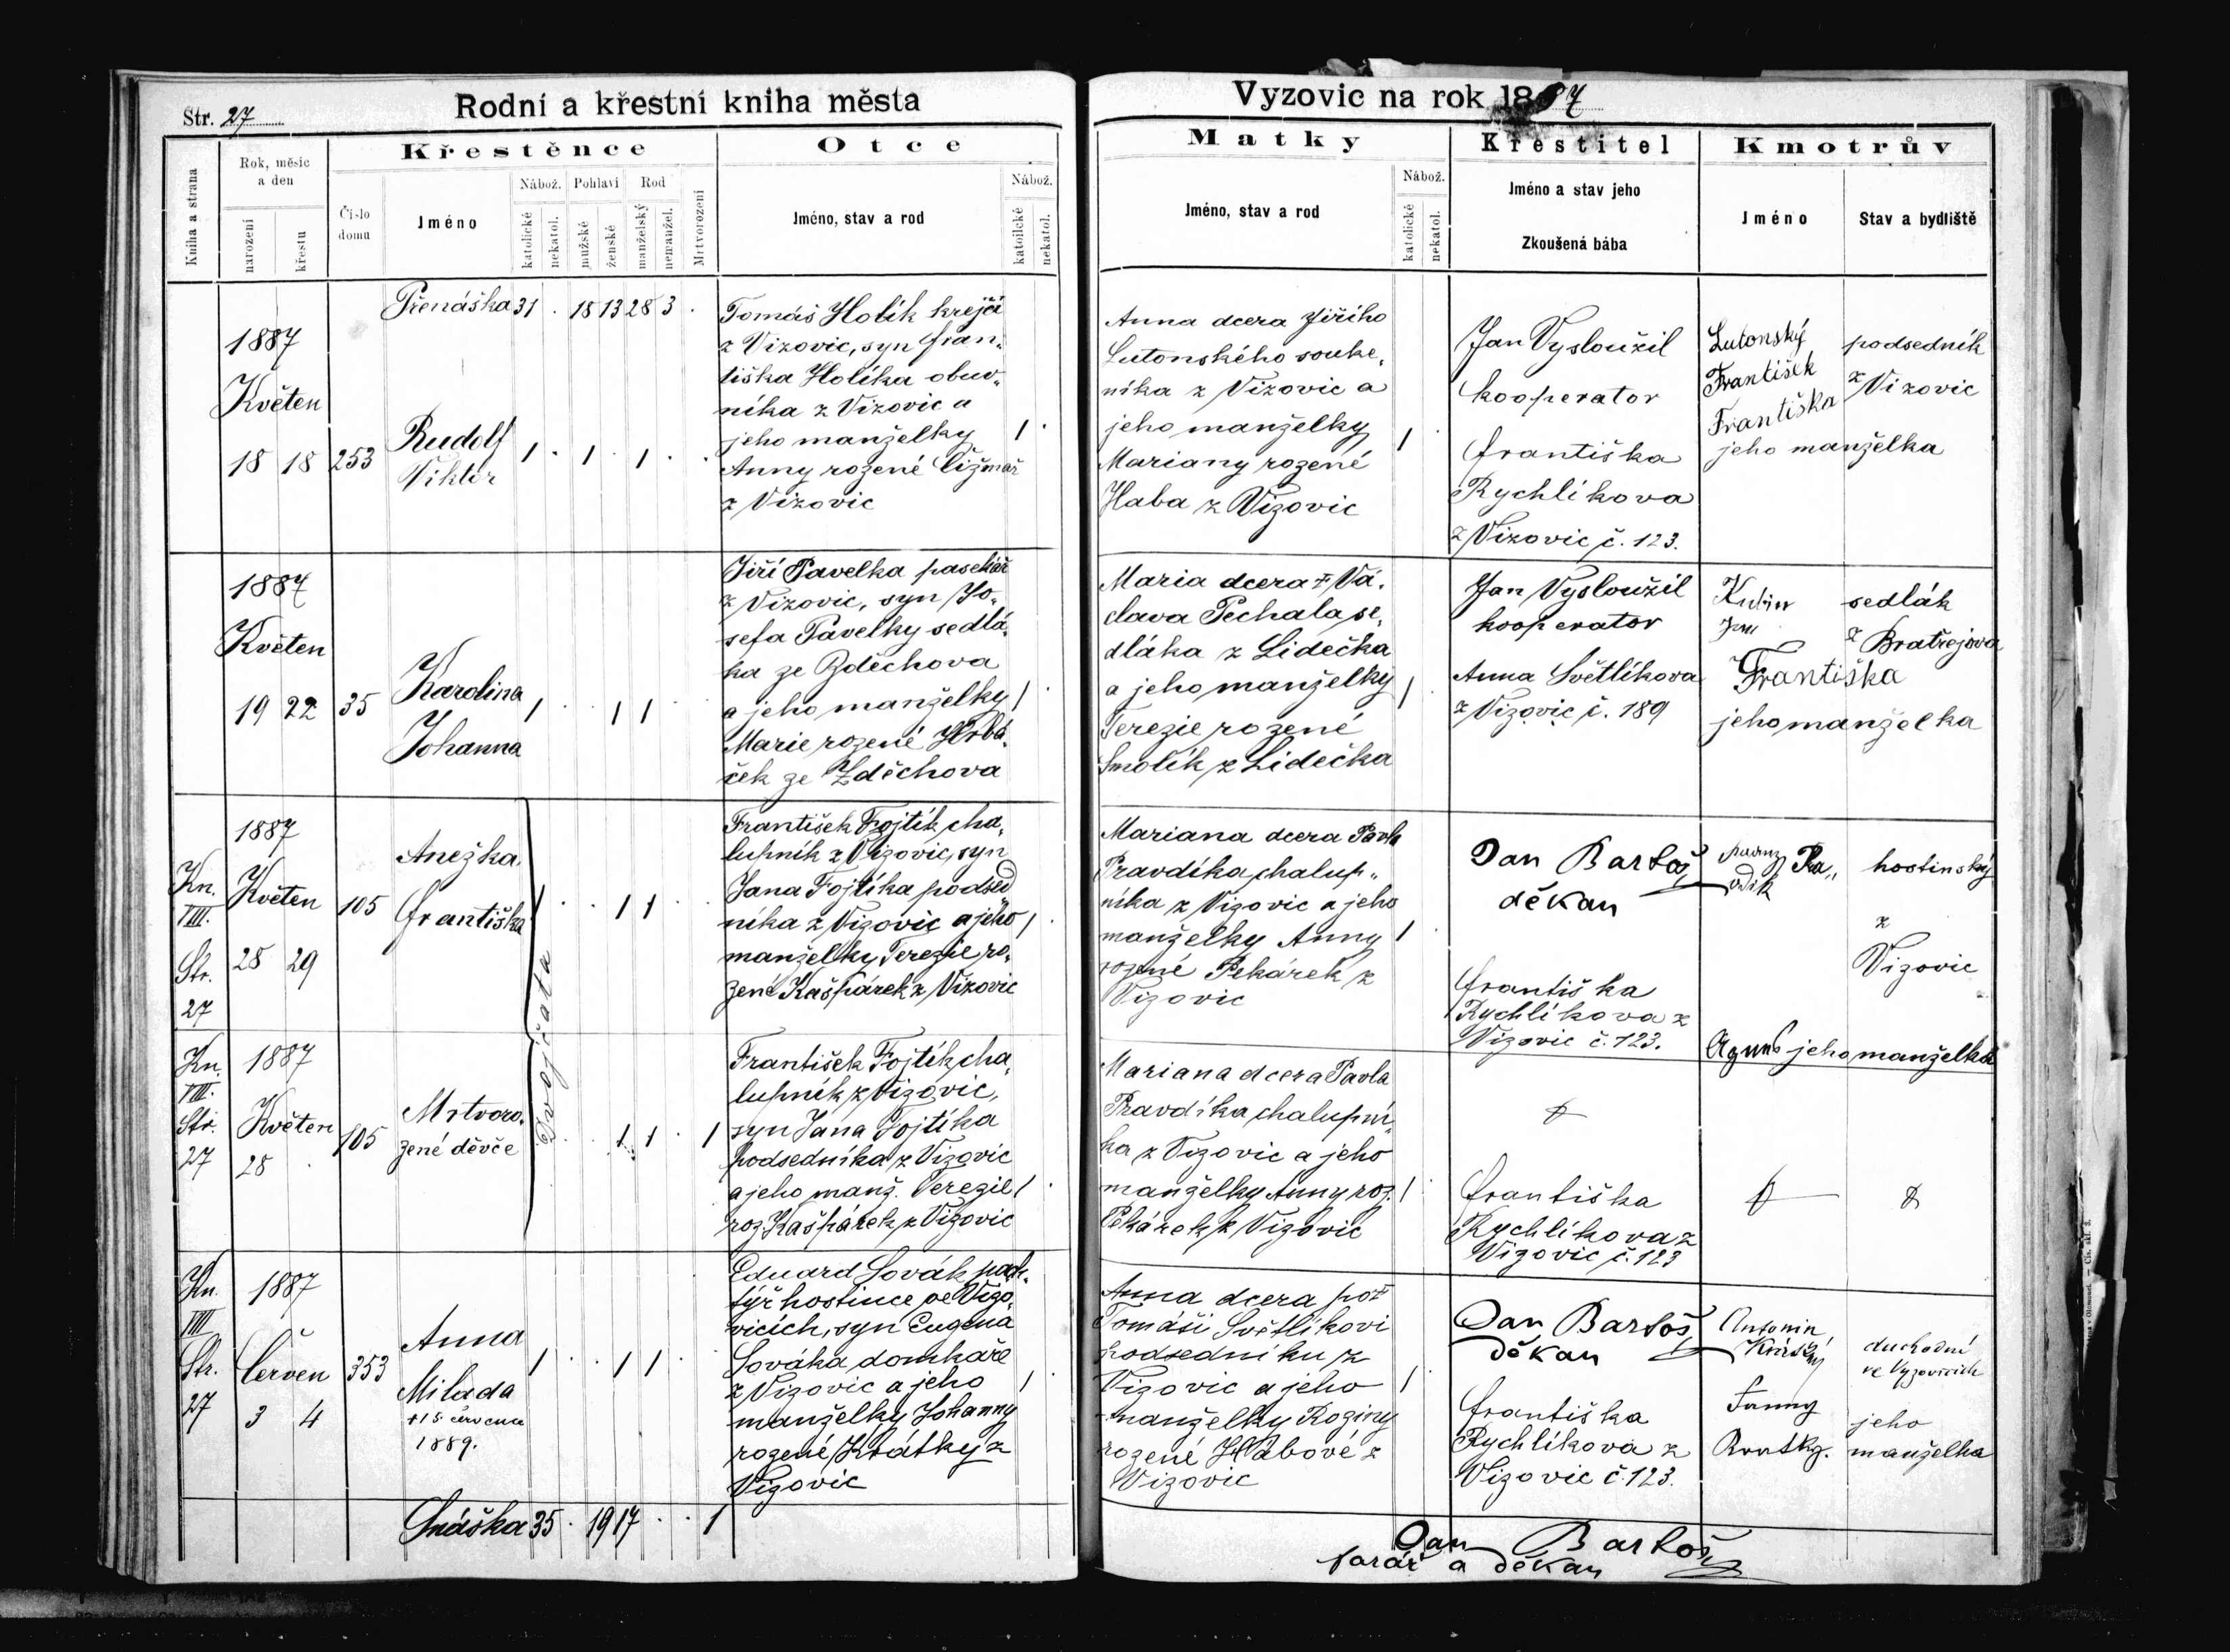 Str. 27
Rodní a křestní kniha města
Vyzovic na rok 1887
Kniha a strana
Rok, měsíc
a den
narození
křestu
Číslo
domu
Křestěnce
Jméno
Nábož.
katolické
nekatol.
Pohlaví
mužské
ženské
Rod
manželský
nemanžel.
Mrtvorození
Otce
Jméno, stav a rod
Nábož.
katolické
nekatol.
Matky
Jméno, stav a rod
Nábož.
katolické
nekatol.
Křestitel
Jméno a stav jeho
Zkoušená bába
Kmotrův
Jméno
Stav a bydliště
Přenáška 31 . 18 13 28 3 .
1887
Květen
18 18 253
Rudolf
Viktor
1 . 1 . 1 . .
Tomáš Holík krejčí
z Vizovic, syn Fran„
tiška Holíka obuv„
níka z Vizovic a
jeho manželky
Anny rozené Čižmař
z Vizovic
1 .
Anna dcera Jiřího
Lutonského souke„
níka z Vizovic a
jeho manželky
Mariany rozené
Haba z Vizovic
1
Jan Vysloužil
kooperator
Františka
Rychlíkova
z Vizovic č. 123.
Lutonský
František
Františka
jeho manželka
podsedník
z Vizovic
1887
Květen
19 22 35
Karolina
Johanna
1 . . 1 1 .
Jiří Pavelka pasekář
z Vizovic, syn Jo„
sefa Pavelky sedlá„
ka ze Zděchova
a jeho manželky
Marie rozené Hrbá„
ček ze Zděchova
1 .
Maria dcera † Vá„
clava Pechala se„
dláka z Lidečka
a jeho manželky
Terezie rozené
Smolík z Lidečka
1
Jan Vysloužil
kooperator
Anna Světlíkova
z Vizovic č. 189
Františka
jeho manželka
sedlák
z Bratřejova
Kn.
VIII.
Str.
27
1887
Květen
28 29
105
Anežka
Františka
Dvojčata
1 . . 1 1 .
František Fojtík cha„
lupník z Vizovic, syn
Jana Fojtíka podsed
níka z Vizovic a jeho
manželky Terezie ro„
zené Kašpárek z Vizovic
1 .
Mariana dcera Pavla
Pravdíka chalup„
níka z Vizovic a jeho
manželky Anny
rozené Pekárek z
Vizovic
1
Jan Bartoš
děkan
Františka
Rychlíkova z
Vizovic č. 123.
hostinský
z
Vizovic
jeho manželka
Kn.
VIII.
Str.
27
1887
Květen
28
105
Mrtvoro„
zené děvče
. . 1 1 . 1
František Fojtík cha„
lupník z Vizovic,
syn Jana Fojtíka
podsedníka z Vizovic
a jeho manž. Terezie
roz. Kašpárek z Vizovic
1 .
Mariana dcera Pavla
Pravdíka chalupní„
ka z Vizovic a jeho
manželky Anny roz.
Pekárek z Vizovic
1
Františka
Rychlíkova z
Vizovic č. 123
Kn.
VIII
Str.
27
1887
Červen
3 4
353
Anna
Milada
† 15 července
1889.
1 . . 1 1 .
Eduard Lovák pach„
týř hostince ve Vizo„
vicích, syn Eugena
Lováka domkaře
z Vizovic a jeho
manželky Johanny
rozené Krátký z
Vizovic
1 .
Anna dcera po †
Tomáši Světlíkovi
podsedníku z
Vizovic a jeho
manželky Roziny
rozené Hábové z
Vizovic
1
Jan Bartoš
děkan
Františka
Rychlíkova z
Vizovic č. 123.
Antonin
Fanny
duchodní
ve Vyzovicích
jeho
manželka
Snáška 35 . 19 17 . . 1
Jan Bartoš
farář a děkan